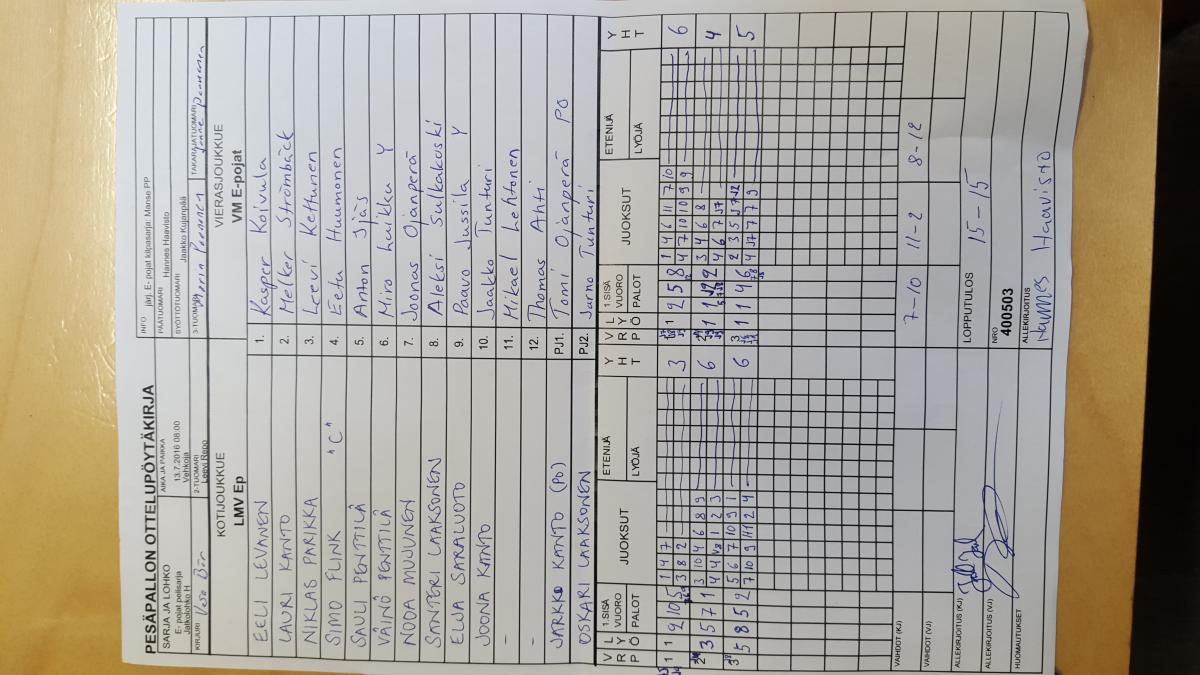 PESÄPALLON OTTELUPÖYTÄKIRJA
SARJA JA LOHKO
E- pojat pelisarja
Jatkolohko H
AIKA JA PAIKKA
13.7.2016 08:00
Vehkoja
INFO järj. E- pojat kilpasarja: Manse PP
PÄÄTUOMARI Hannes Haavisto
SYÖTTÖTUOMARI Jaakko Kujanpää
KIRJURI Vesa
2-TUOMARI
Leevi Repo
3-TUOMARI
TAKARAJATUOMARI
KOTIJOUKKUE
LMV Ep
VIERASJOUKKUE
VM E-pojat
EELI LEVANEN 1. Kasper Koivula
LAURI KANTO 2. Melker Strömbäck
NIKLAS PARIKKA 3. Leevi Kettunen
SIMO FLINK "C" 4. Eetu Huumonen
SAULI PENTTILÄ 5. Anton Sjäs
VÄINÖ PENTTILÄ 6. Miro Luikku Y
NOOA MUJUNEN 7. Joonas Ojanperä
SANTERI LAAKSONEN 8. Aleksi Sulkakoski
ELJA SARALUOTO 9. Paavo Jussila Y
JOONA KANTO 10. Jaakko Tunturi
- 11. Mikael Lehtonen
- 12. Thomas Ahti
JARKKO KANTO (PO) PJ1. Tomi Ojanperä PO
OSKARI LAAKSONEN PJ2. Jarmo Tunturi
V R P L Y Ö 1.SISÄ VUORO PALOT JUOKSUT ETENIJÄ LYÖJÄ Y H T V R P L Y Ö 1.SISÄ VUORO PALOT JUOKSUT ETENIJÄ LYÖJÄ Y H T
1 1 2 10 5 1 4 7 3 1 2 5 8 1 4 6 11 7 10 6
3 8 2 4 7 10 10 9 9
2 3 5 7 1 3 10 4 6 8 9 6 1 1 3 4 6 8 4
4 4 1 2 3 4 6 7
3 5 8 5 2 5 6 7 10 9 1 6 3 1 1 4 6 2 3 5 5
7 10 9 11 2 4 4 7 7 9
VAIHDOT (KJ) 7-10 11-2 8-12
VAIHDOT (VJ)
ALLEKIRJOITUS (KJ)
LOPPUTULOS 15-15
ALLEKIRJOITUS (VJ)
NRO
400503
HUOMAUTUKSET
ALLEKIRJOITUS
Hannes Haavisto